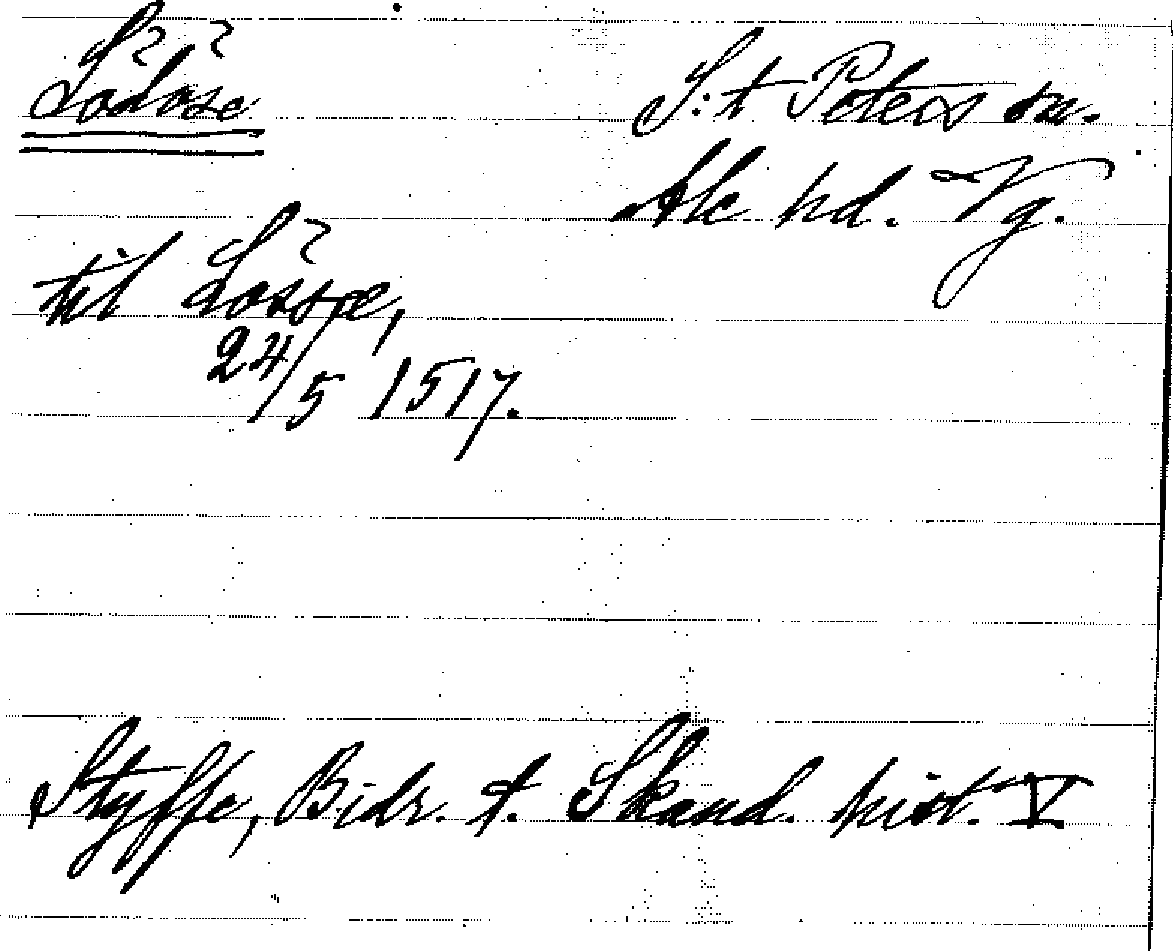 Lödöse
S:t Peters sn.
Ale hd. Vg.
til Lössæ,
24/5 1517.
Styffe, Bidr. t. Skand. hist. V